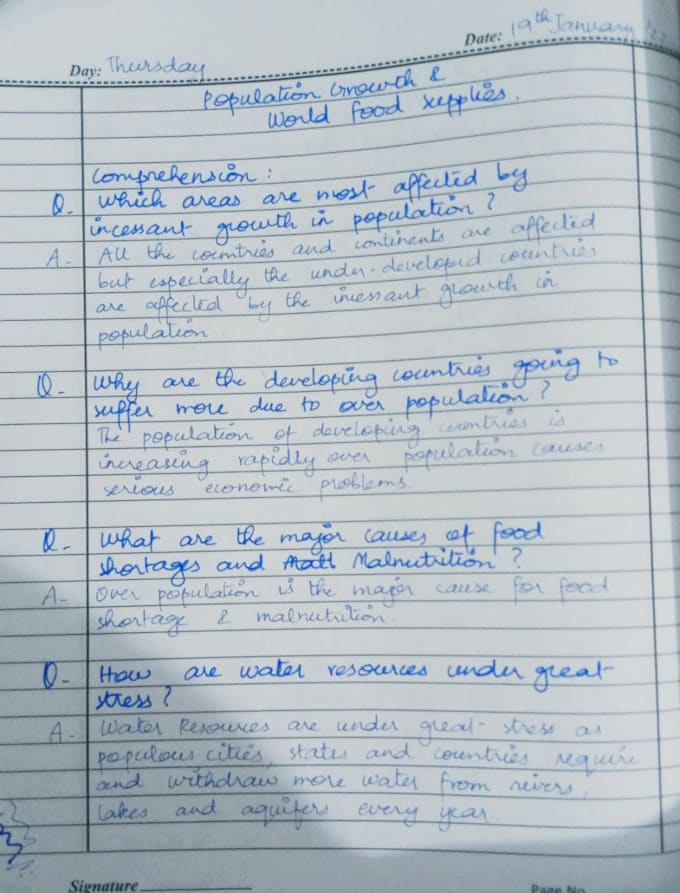 Date: 19th January '23
Day: Thursday
Population Growth &
World food supplies.
Comprehension:
Q. Which areas are most affected by
incessant growth in population?
A- All the countries and continents are affected
but especially the under-developed countries
are affected by the incessant growth in
population
Q- Why are the developing countries going to
suffer more due to over population?
The population of developing countries is
increasing rapidly over population causes
serious economic problems.
Q- What are the major causes of food
shortages and Malnutrition?
A- Over population is the major cause for food
shortage & malnutrition.
Q- How are water resources under great
stress?
A- Water Resources are under great stress as
populous cities, states and countries require
and withdraw more water from rivers,
lakes and aquifers every year.
Signature
Page No.